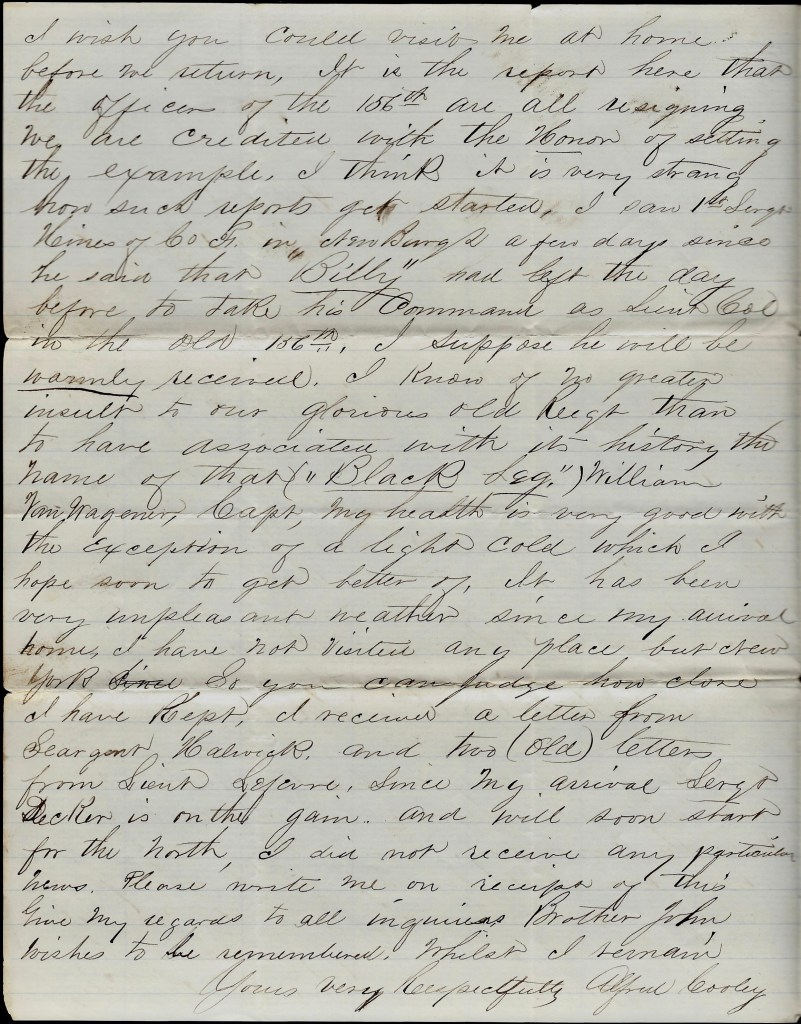 I wish you could visit me at home
before we return, It is the report here that
the officers of the 156th are all resigning
We are credited with the Honor of setting
the example. I think it is very strang
how such reports get started. I saw 1st Sergt
Hines of Co G. in NewBurgh a few days since
he said that "Billy" had left the day
before to take his Command as Lieut Col
in the old 156th. I suppose he will be
warmly received. I know of no greater
insult to our glorious old Regt than
to have associated with its history the
name of that ("Black Leg.") William
Van Wagener, Capt, My health is very good with
the exception of a light cold which I
hope soon to get better of. It has been
very unpleasant weather since my arrival
home, I have not visited any place but New
York Since So you can judge how close
I have Kept. I received a letter from
Seargent Halwick. and two (old) letters
from Lieut Lefevre. Since my arrival Sergt
Decker is on the gain. and will soon start
for the North, I did not receive any particular
news. Please write me on receipt of this
Give my regards to all inquirers Brother John
wishes to be remembered. Whilst I remain
Yours very Respectfully Alfred Cooley